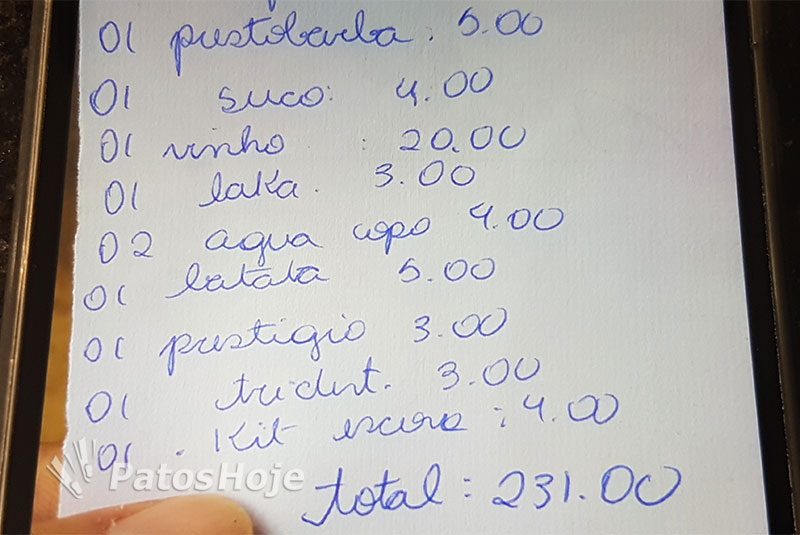 01 prestobarba: 5.00
01 suco: 4.00
01 vinho : 20.00
01 laka. 3.00
02 agua copo 4.00
01 batata 5.00
01 prestigio 3.00
01 trident. 3.00
01 . Kit escova : 4.00
total : 231.00
PatosHoje